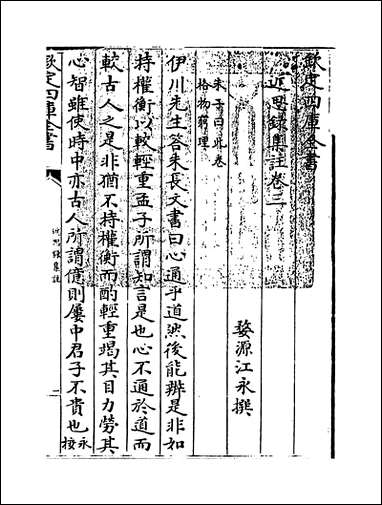 欽定四庫全書
近思録集註卷三
婺源江永撰
朱子曰此卷
格物窮理
伊川先生答朱長文書曰心通乎道然後能辨是非如
持權衡以較輕重孟子所謂知言是也心不通於道而
較古人之是非猶不持權衡而酌輕重竭其目力勞其
心智雖使時中亦古人所謂億則屢中君子不貴也永
按
欽定四庫全書
近思録集註